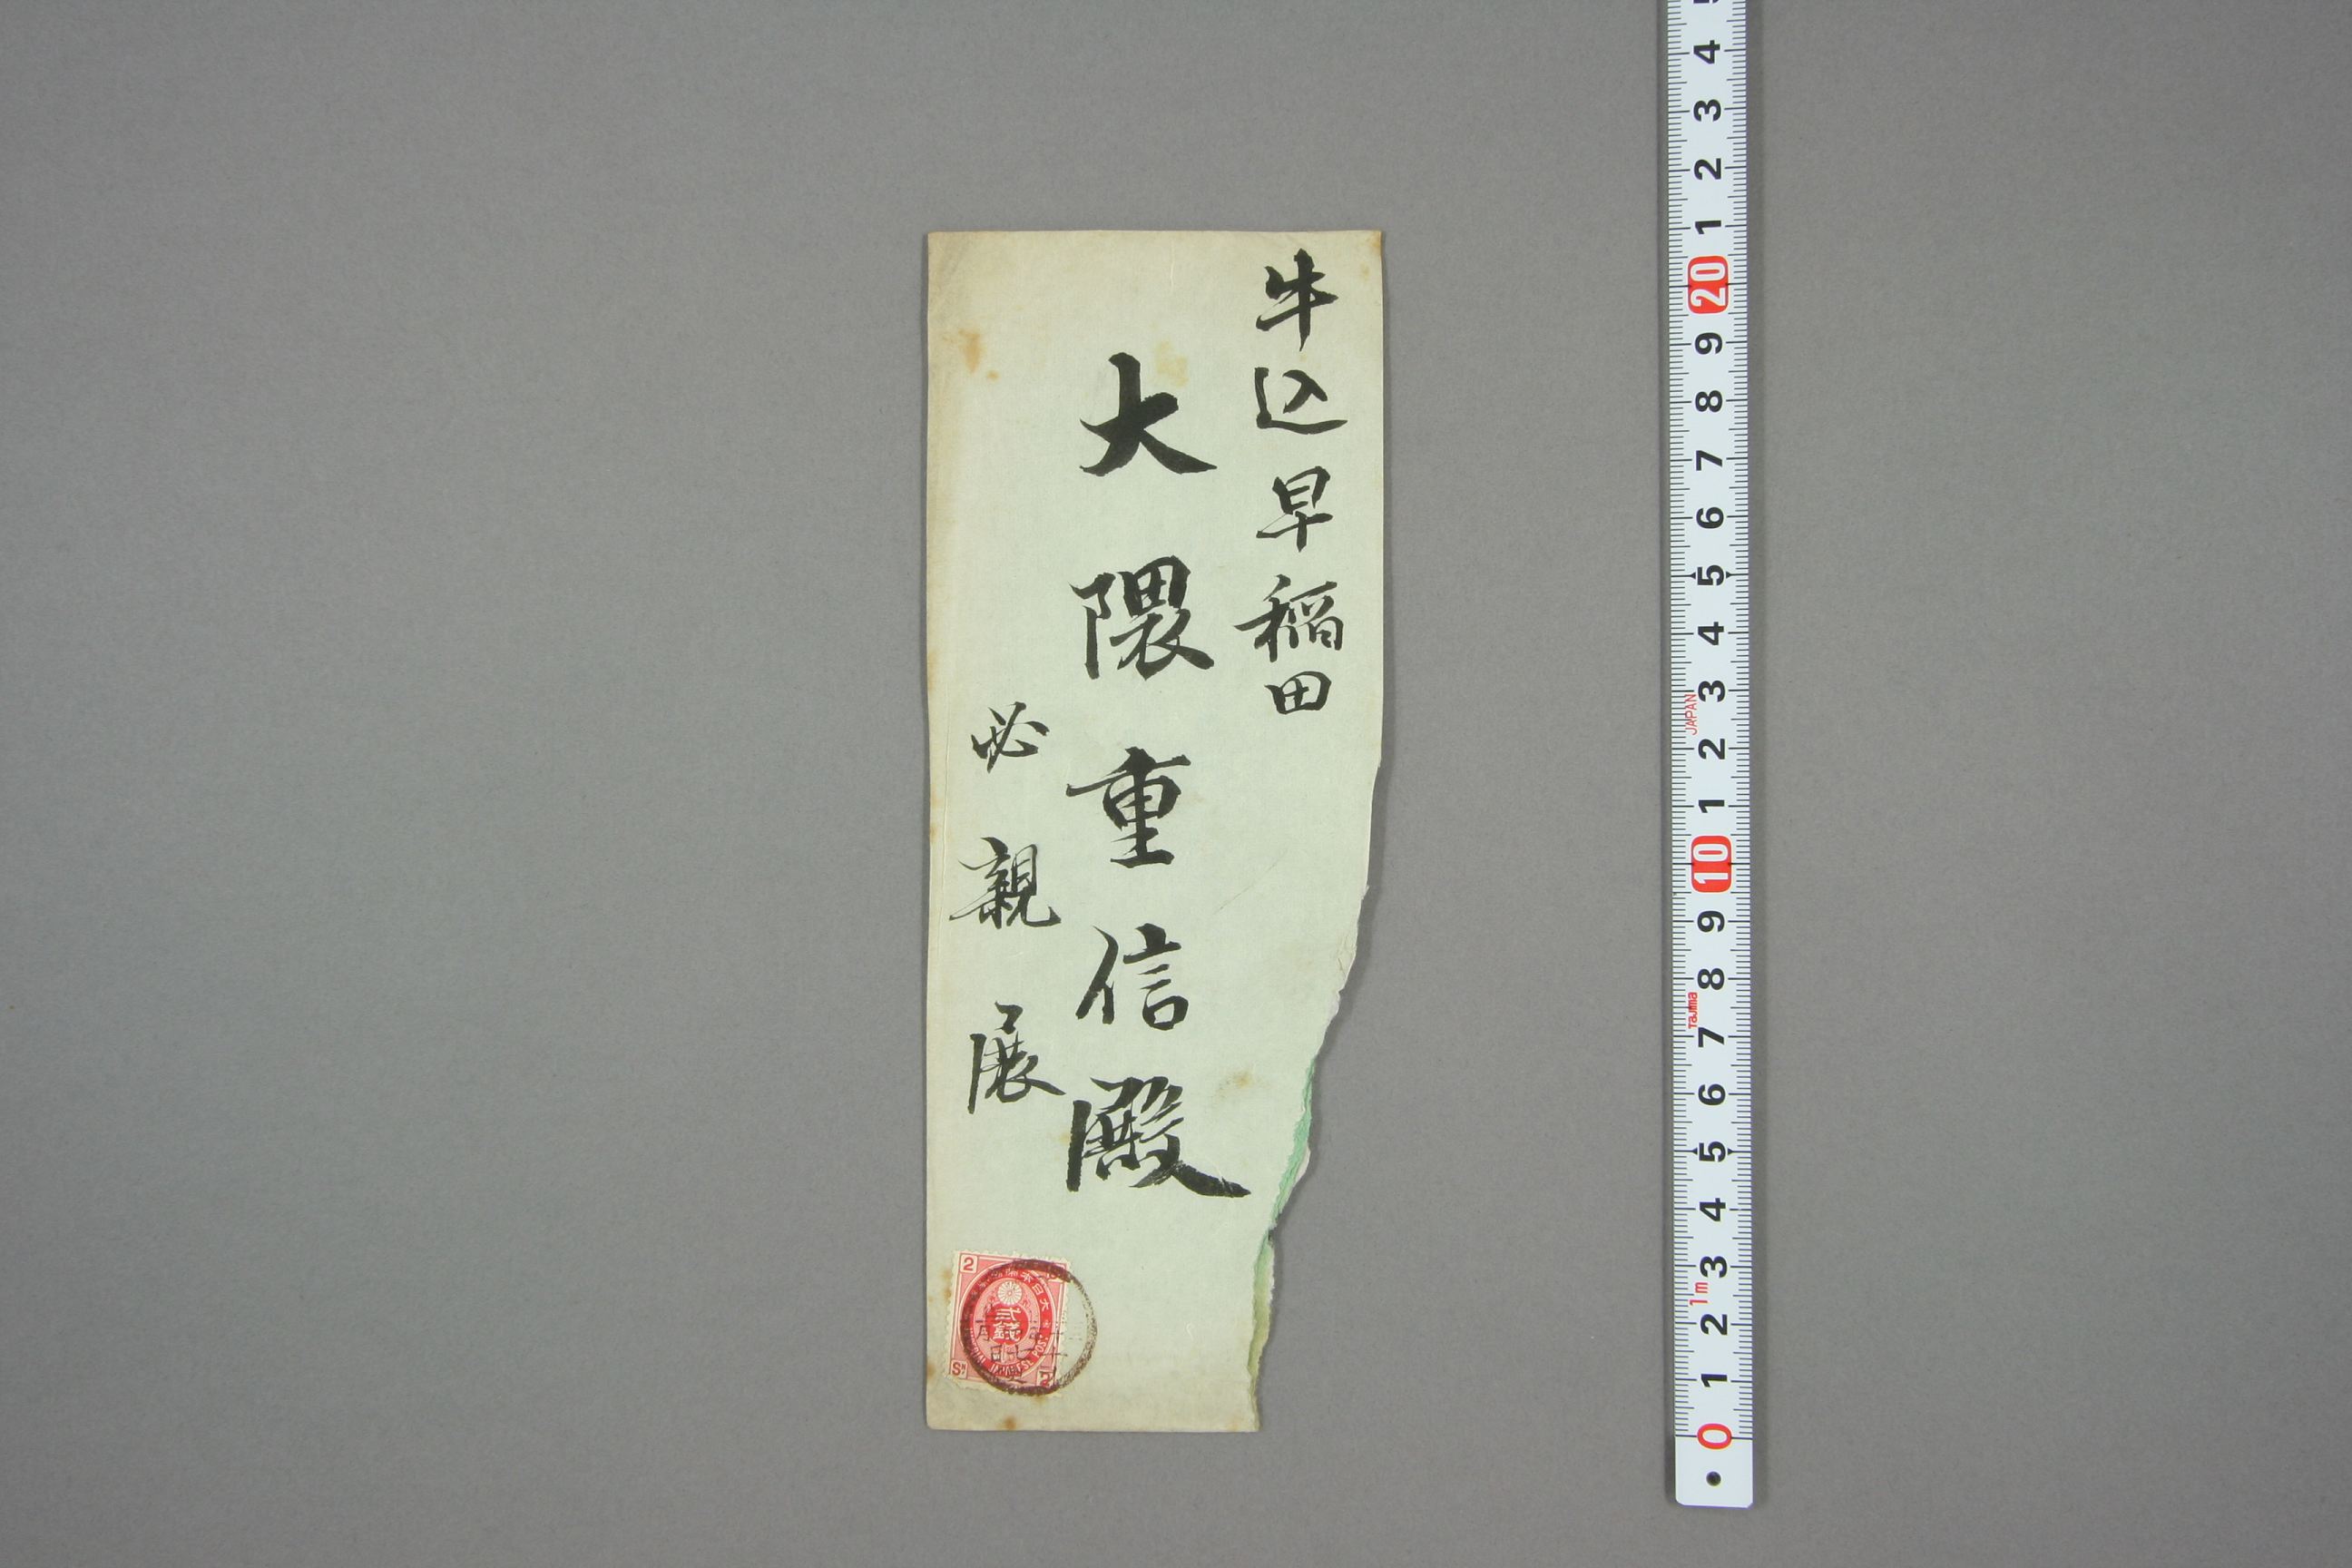 牛込早稲田
大隈重信殿
必親展
2
大日本
貳銭
JAPANESE POST
Sn
2
5
4
3
2
1
20
9
8
7
6
5
4
3
JAPAN
2
1
10
9
8
Tajima
7
6
5
4
3
1m
2
1
0